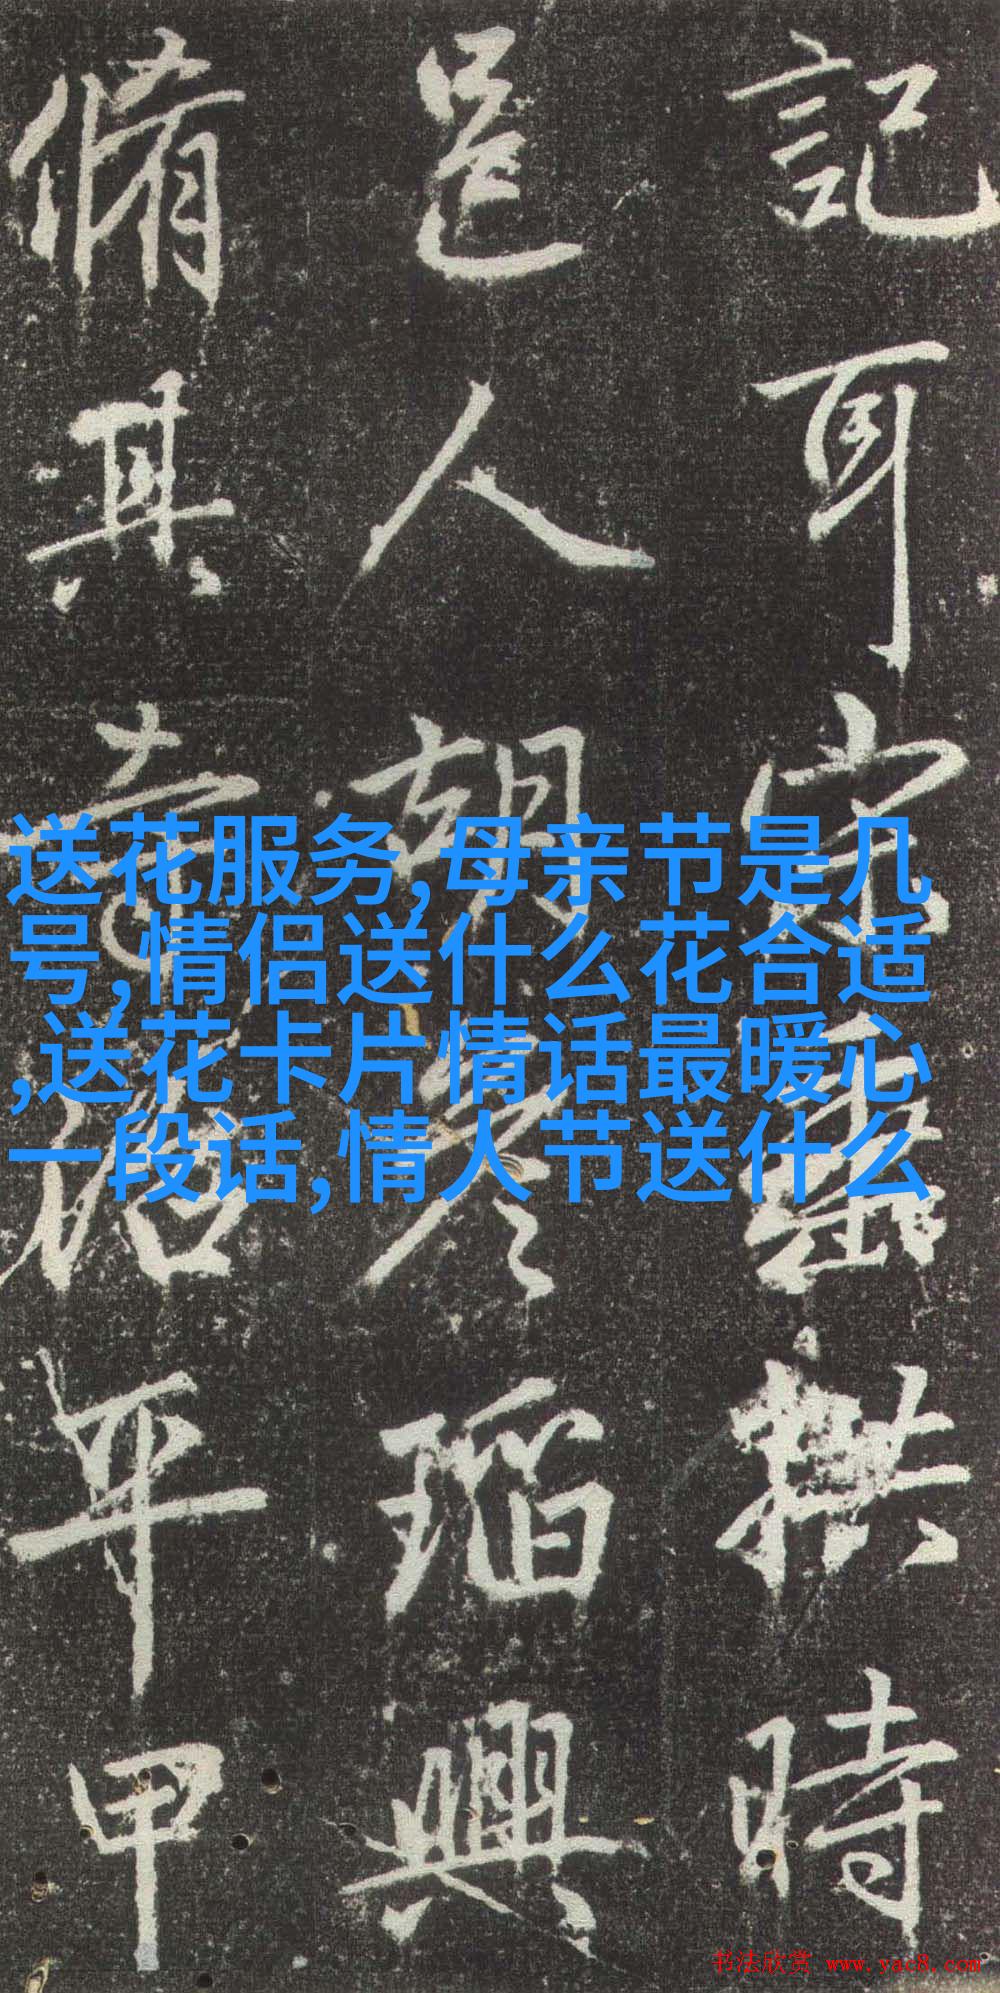 記耳重拱時
邑人胡瑫興
脩其寺治平甲
送花服务,母亲节是几
号,情侣送什么花合适
,送花卡片情话最暖心
一段话,情人节送什么
书法欣赏 www.yac8.com